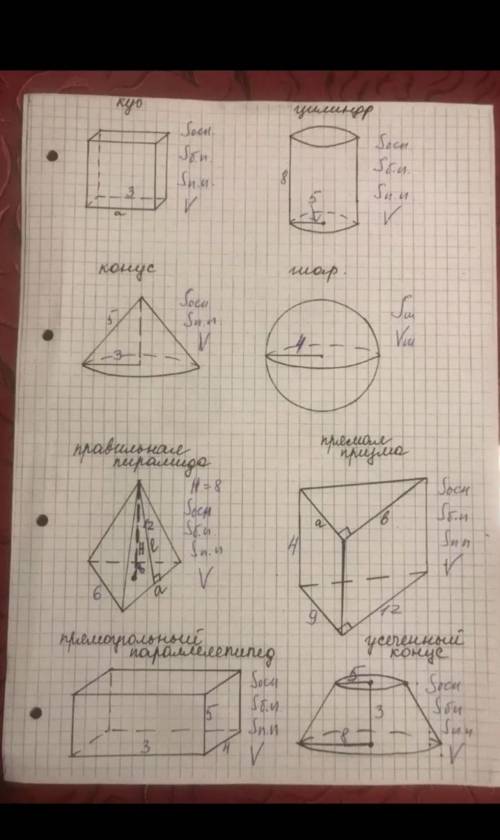 куб
Sосн.
Sб.п.
Sп.п.
V
3
a
цилиндр
Sосн
Sб.п.
Sп.п
V
8
5
конус
Sосн
Sп.п
V
5
3
шар.
Sш
Vш
4
правильная
пирамида
H=8
Sосн
Sб.п
Sп.п
V
12
H
8
l
6
a
прямая
призма
Sосн
Sб.п
Sп.п
V
a
в
4
9
12
прямоугольный
параллелепипед
Sосн
Sб.п
Sп.п
V
5
3
4
усеченный
конус
Sосн
Sб.п
Sп.п
V
5
3
8